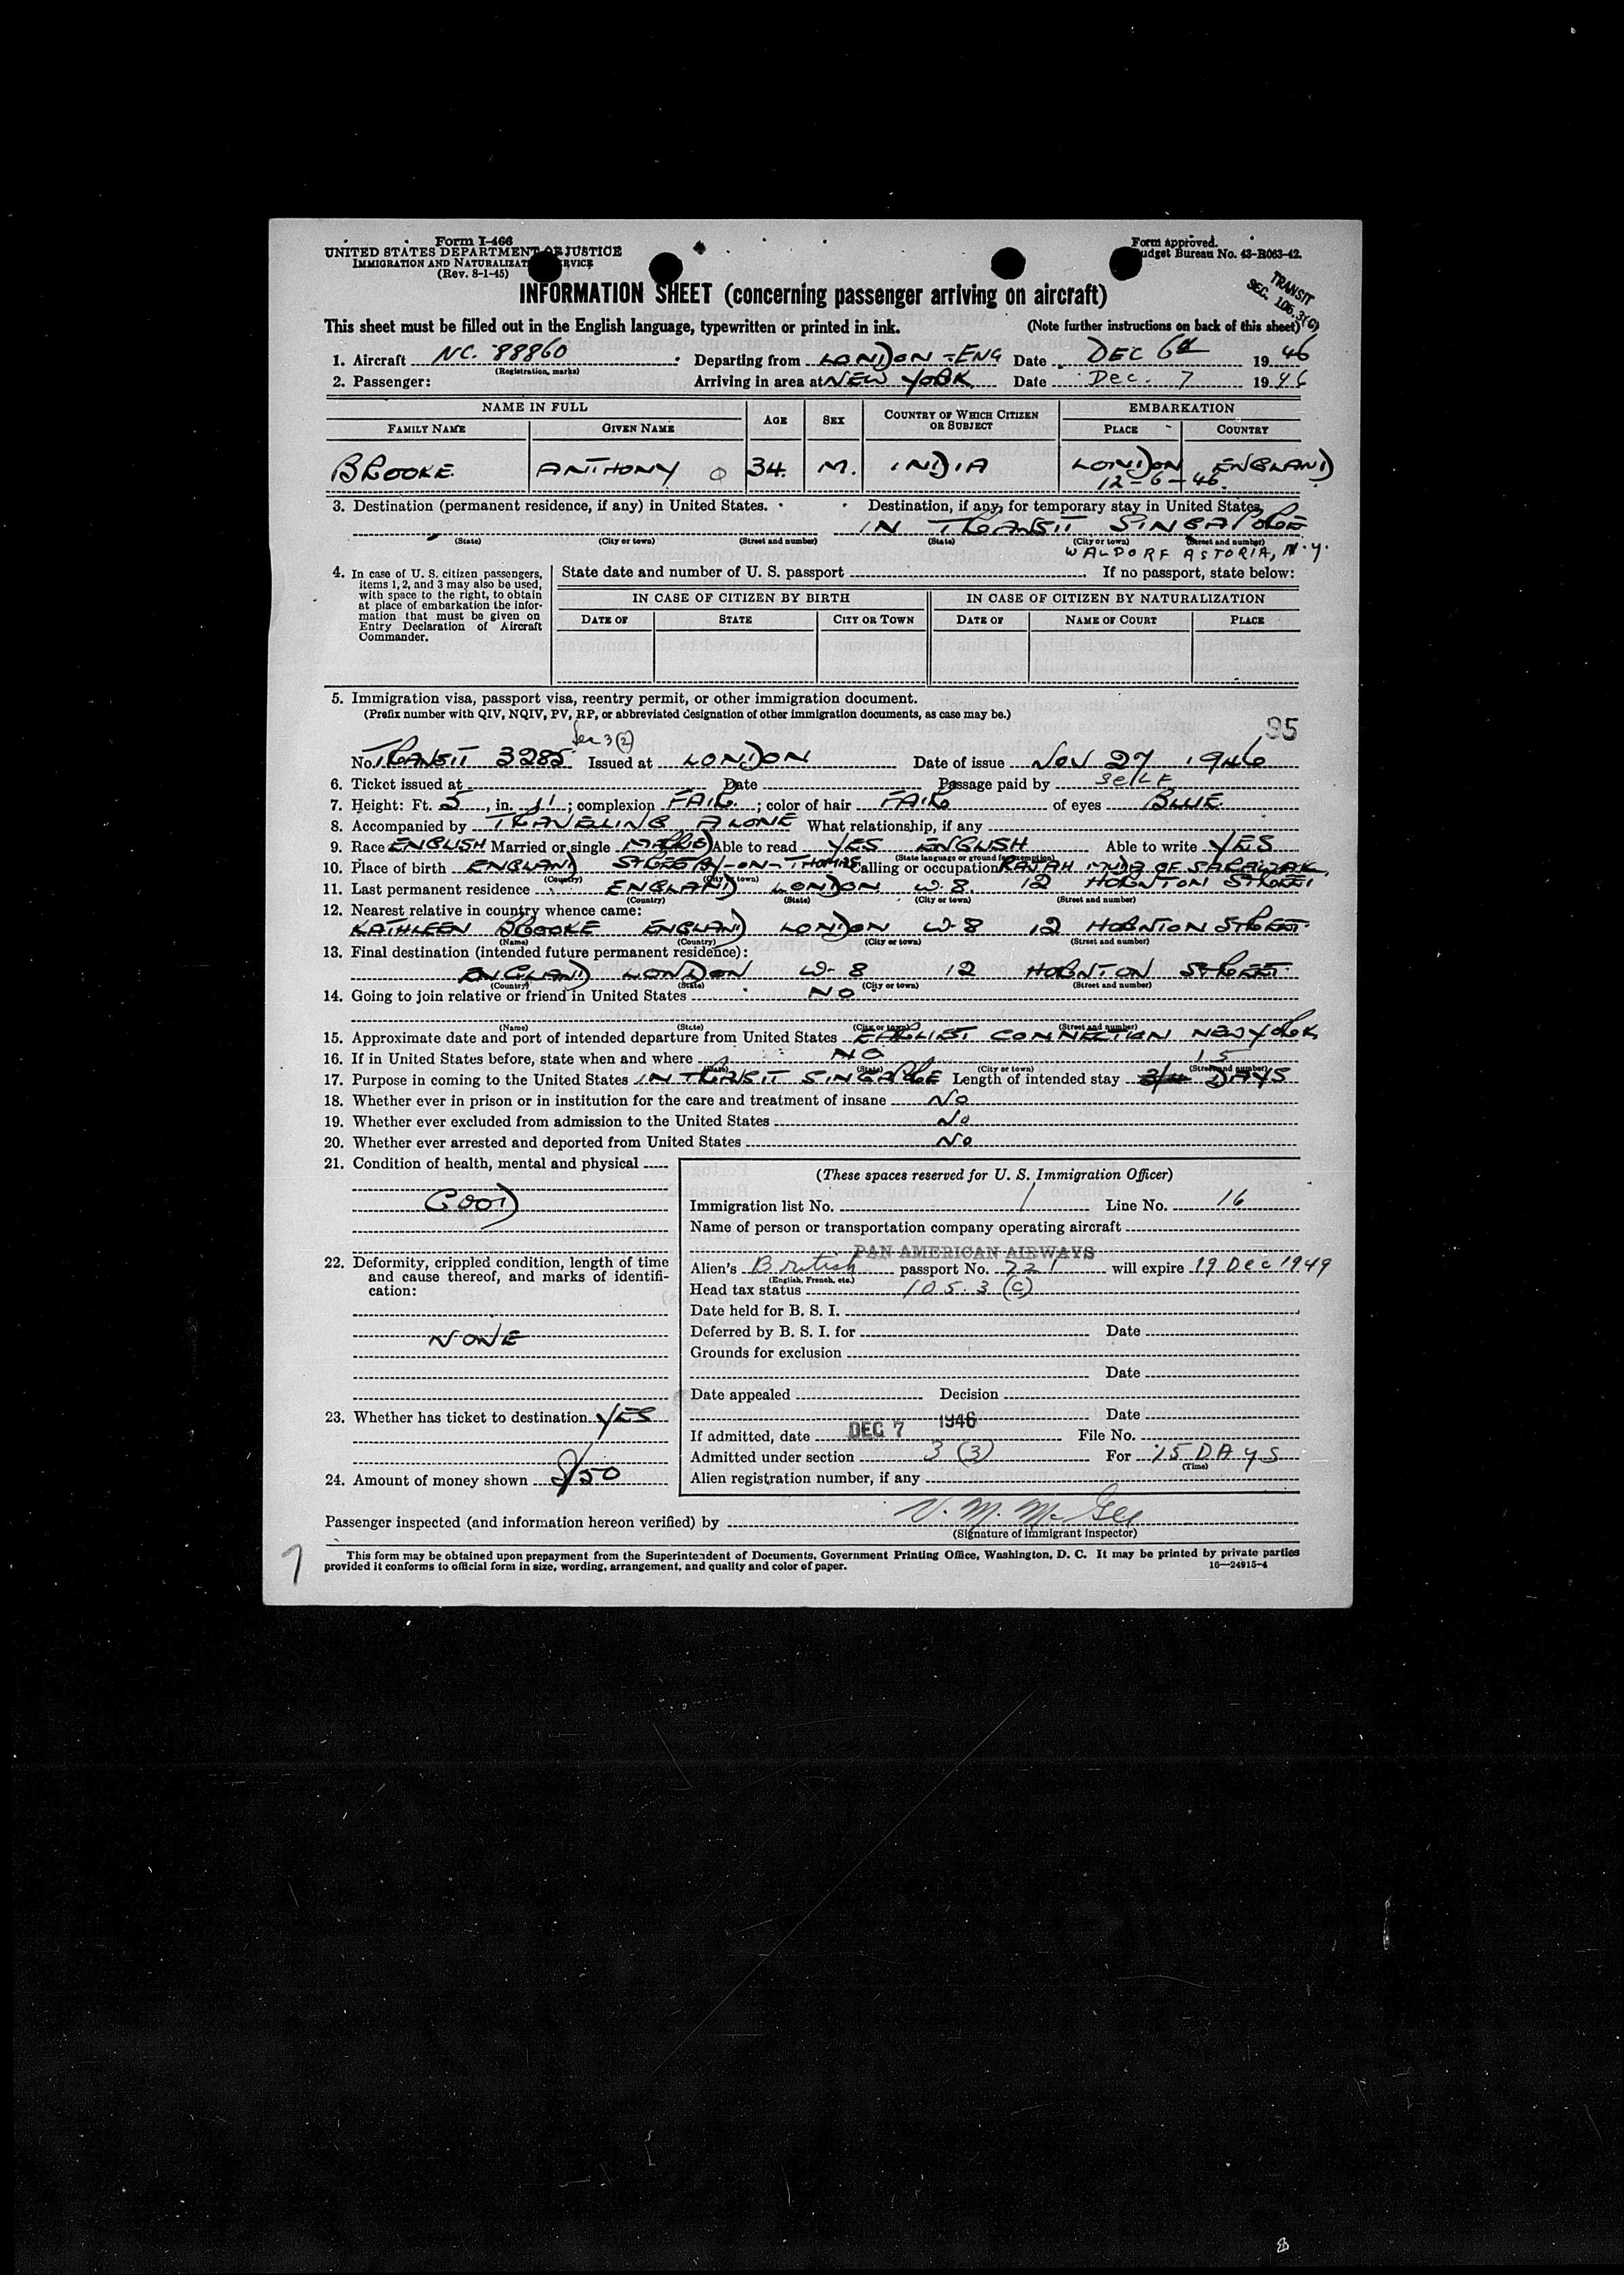 Form I-466
UNITED STATES DEPARTMENT OF JUSTICE
IMMIGRATION AND NATURALIZAT SERVICE
(Rev. 8-1-45)
Form approved.
Budget Bureau No. 43-R063-42.
TRANSIT
SEC. 105.3(C)
INFORMATION SHEET (concerning passenger arriving on aircraft)
This sheet must be filled out in the English language, typewritten or printed in ink. (Note further instructions on back of this sheet)
1. Aircraft NC. 88860 Departing from LONDON - ENG Date DEC 6th 1946
(Registration, marks)
2. Passenger: Arriving in area at NEW YORK Date Dec. 7 1946
NAME IN FULL AGE SEX COUNTRY OF WHICH CITIZEN OR SUBJECT EMBARKATION
FAMILY NAME GIVEN NAME PLACE COUNTRY
BROOKE ANTHONY 34. M. INDIA LONDON ENGLAND
12-6-46.
3. Destination (permanent residence, if any) in United States. Destination, if any, for temporary stay in United States.
IN TRANSIT SINGAPORE
(State) (City or town) (Street and number) (State) (City or town) (Street and number)
WALDORF ASTORIA, N.Y.
4. In case of U. S. citizen passengers, items 1, 2, and 3 may also be used, with space to the right, to obtain at place of embarkation the information that must be given on Entry Declaration of Aircraft Commander.
State date and number of U. S. passport If no passport, state below:
IN CASE OF CITIZEN BY BIRTH IN CASE OF CITIZEN BY NATURALIZATION
DATE OF STATE CITY OR TOWN DATE OF NAME OF COURT PLACE
5. Immigration visa, passport visa, reentry permit, or other immigration document.
(Prefix number with QIV, NQIV, PV, RP, or abbreviated designation of other immigration documents, as case may be.)
95
Sec 3(2)
No. TRANSIT 3285 Issued at LONDON Date of issue NOV 27 1946
6. Ticket issued at Date Passage paid by SELF
7. Height: Ft. 5, in. 11; complexion FAIR; color of hair FAIR of eyes BLUE
8. Accompanied by TRAVELLING ALONE What relationship, if any
9. Race ENGLISH Married or single MARRIED Able to read YES ENGLISH Able to write YES
(State language or ground for exemption)
10. Place of birth ENGLAND STREETLY-ON-THAMES Calling or occupation RAJAH MUDA OF SARAWAK
(Country) (City or town)
11. Last permanent residence ENGLAND LONDON W.8. 12 HORNTON STREET
(Country) (State) (City or town) (Street and number)
12. Nearest relative in country whence came:
KATHLEEN BROOKE ENGLAND LONDON W-8 12 HORNTON STREET
(Name) (Country) (City or town) (Street and number)
13. Final destination (intended future permanent residence):
ENGLAND LONDON W-8 12 HORNTON STREET
(Country) (State) (City or town) (Street and number)
14. Going to join relative or friend in United States NO
(Name) (State) (City or town) (Street and number)
15. Approximate date and port of intended departure from United States EARLIEST CONNECTION NEW YORK
16. If in United States before, state when and where NO
(Date) (State) (City or town) (Street and number)
15
17. Purpose in coming to the United States IN TRANSIT SINGAPORE Length of intended stay DAYS
18. Whether ever in prison or in institution for the care and treatment of insane NO
19. Whether ever excluded from admission to the United States NO
20. Whether ever arrested and deported from United States NO
21. Condition of health, mental and physical
GOOD
22. Deformity, crippled condition, length of time and cause thereof, and marks of identification:
NONE
23. Whether has ticket to destination YES
24. Amount of money shown $150
(These spaces reserved for U. S. Immigration Officer)
Immigration list No. 1 Line No. 16
Name of person or transportation company operating aircraft
PAN AMERICAN AIRWAYS
Alien's British passport No. 721 will expire 19 Dec 1949
(English, French, etc.)
Head tax status 105.3 (C)
Date held for B. S. I.
Deferred by B. S. I. for Date
Grounds for exclusion
Date
Date appealed Decision
Date
If admitted, date DEC 7 1946 File No.
Admitted under section 3 (3) For 15 DAYS
(Time)
Alien registration number, if any
Passenger inspected (and information hereon verified) by V. M. McGee
(Signature of immigrant inspector)
This form may be obtained upon prepayment from the Superintendent of Documents, Government Printing Office, Washington, D. C. It may be printed by private parties
provided it conforms to official form in size, wording, arrangement, and quality and color of paper. 16—24915-4
7